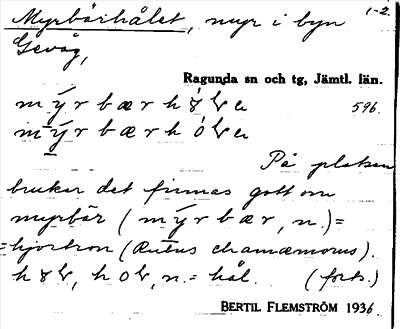 Myrbärhålet, myr i byn 1-2.
Gevåg,
Ragunda sn och tg, Jämtl. län.
596.
På platsen
brukar det finnas gott om
myrbär (mýrbær, n.)=
=hjortron (Rubus chamæmorus).
n.= hål. (forts.)
BERTIL FLEMSTRÖM 1936